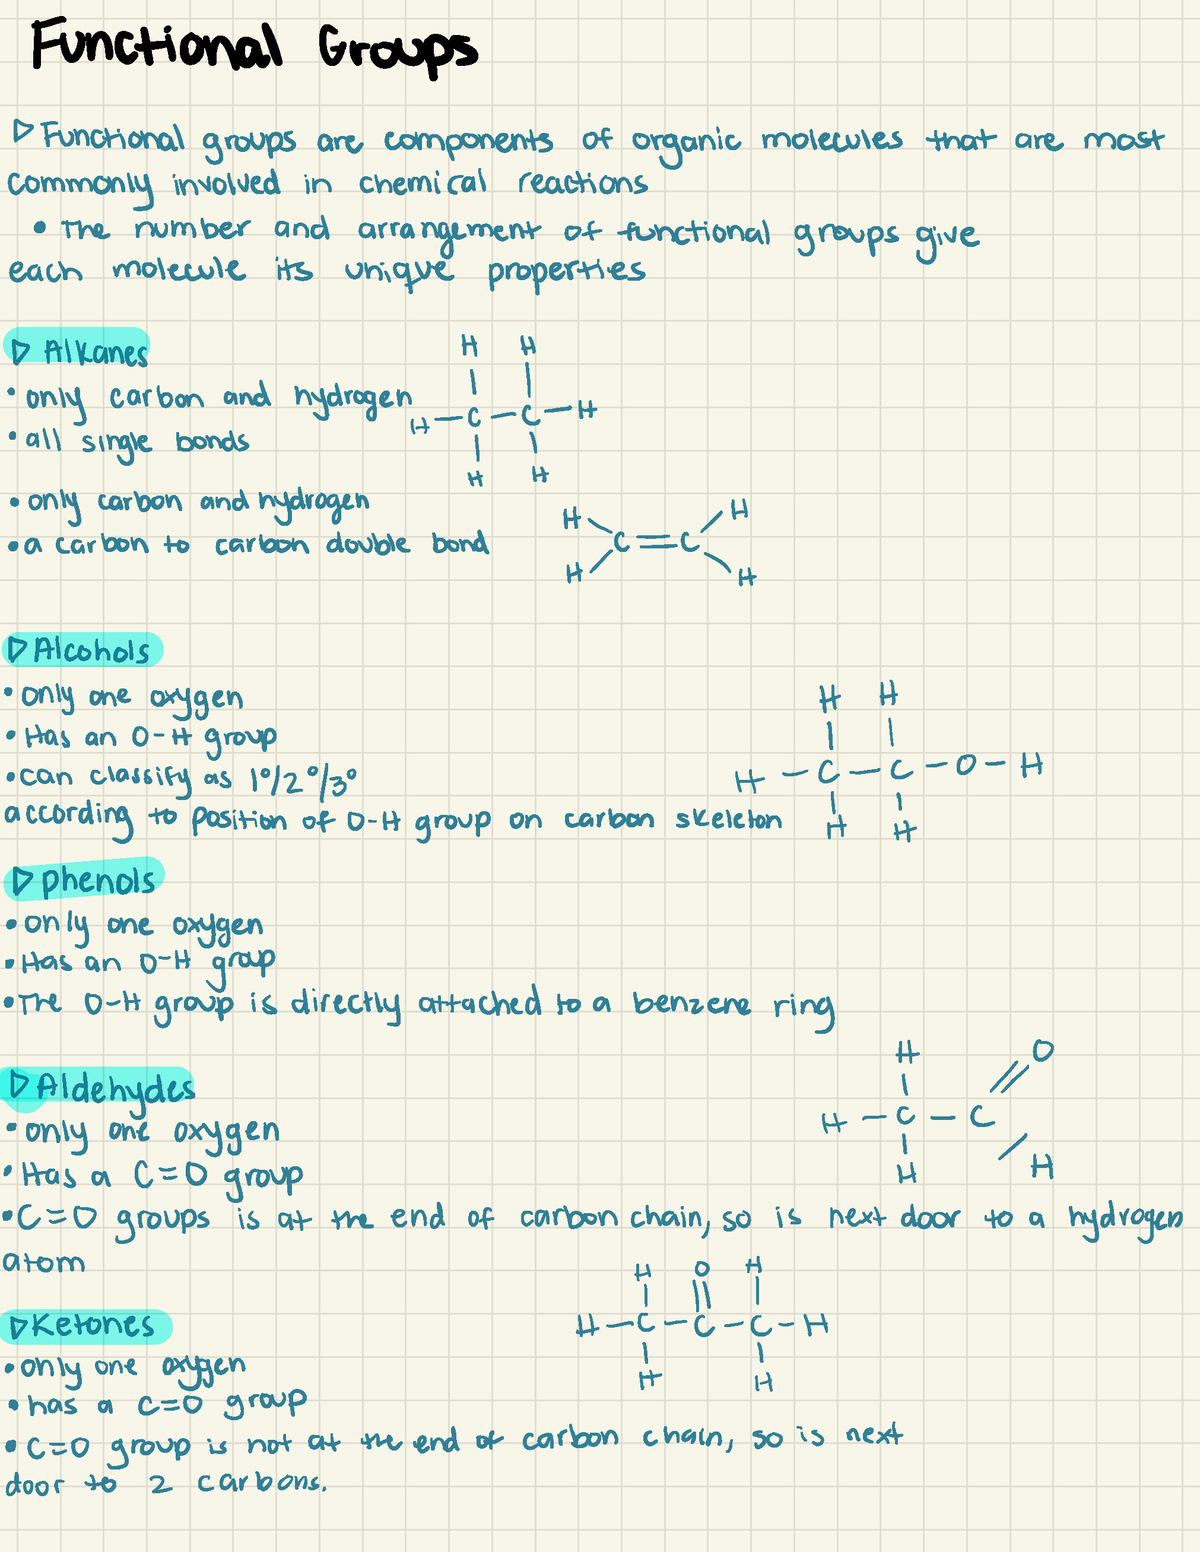 Functional Groups
▷ Functional groups are components of organic molecules that are most
commonly involved in chemical reactions
• The number and arrangement of functional groups give
each molecule its unique properties
▷ Alkanes
• only carbon and hydrogen
• all single bonds
H H
H—C—C—H
H H
• only carbon and hydrogen
• a carbon to carbon double bond
H H
C=C
H H
▷ Alcohols
• only one oxygen
• Has an O-H group
• can classify as 1°/2°/3°
according to position of O-H group on carbon skeleton
H H
H—C—C—O—H
H H
▷ phenols
• only one oxygen
• Has an O-H group
• The O-H group is directly attached to a benzene ring
▷ Aldehydes
• only one oxygen
• Has a C=O group
• C=O groups is at the end of carbon chain, so is next door to a hydrogen
atom
H O
H—C—C
H H
▷ Ketones
• only one oxygen
• has a C=O group
• C=O group is not at the end of carbon chain, so is next
door to 2 carbons.
H O H
H—C—C—C—H
H H